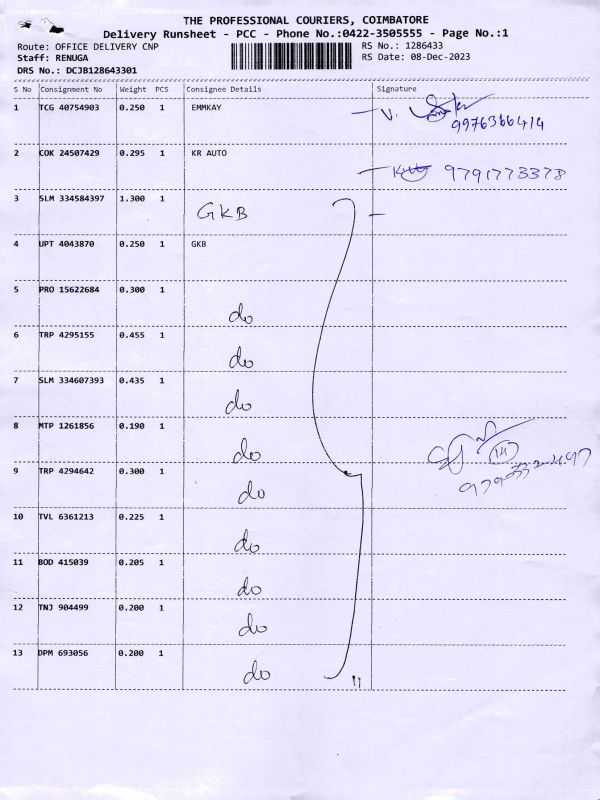 THE PROFESSIONAL COURIERS, COIMBATORE
Delivery Runsheet - PCC - Phone No.:0422-3505555 - Page No.:1
Route: OFFICE DELIVERY CNP
RS No.: 1286433
Staff: RENUGA
RS Date: 08-Dec-2023
DRS No.: DCJB128643301
S No Consignment No Weight PCS Consignee Details Signature
1 TCG 40754903 0.250 1 EMMKAY
9976366414
2 COK 24507429 0.295 1 KR AUTO
9791773378
3 SLM 334584397 1.300 1 GKB
4 UPT 4043870 0.250 1 GKB
5 PRO 15622684 0.300 1 do
6 TRP 4295155 0.455 1 do
7 SLM 334607393 0.435 1 do
8 MTP 1261856 0.190 1 do
9 TRP 4294642 0.300 1 do
10 TVL 6361213 0.225 1 do
11 BOD 415039 0.205 1 do
12 TNJ 904499 0.200 1 do
13 DPM 693056 0.200 1 do